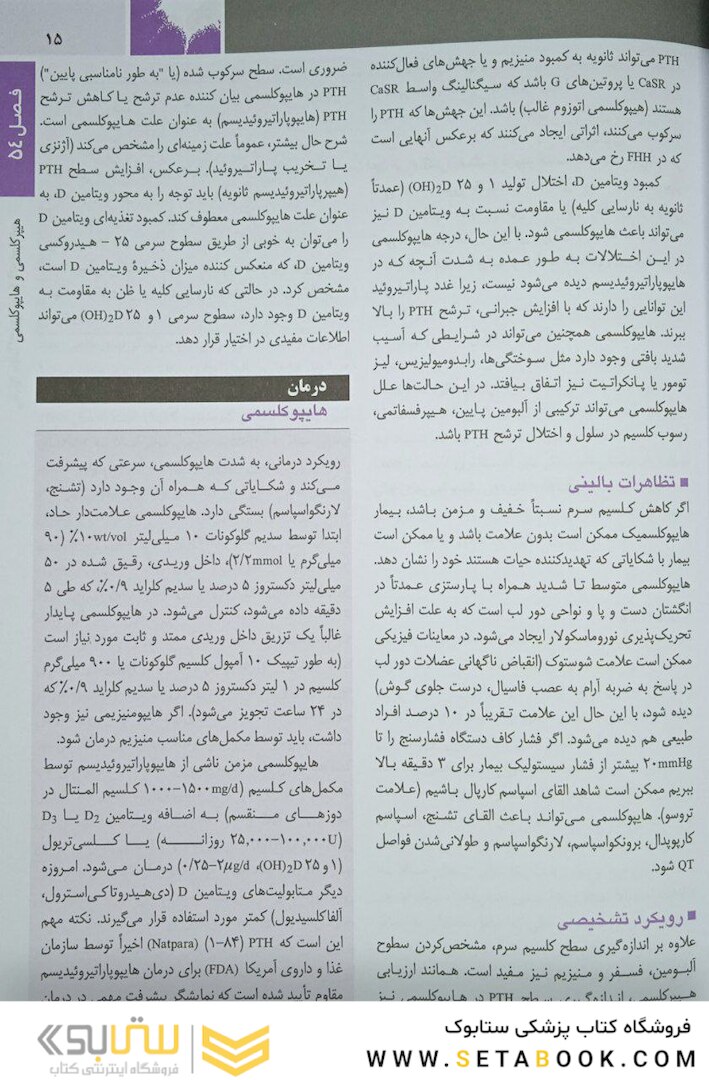 ۱۵
فصل ۵۴
هیپرکلسمی و هایپوکلسمی
PTH می‌تواند ثانویه به کمبود منیزیم و یا جهش‌های فعال‌کننده
در CaSR یا پروتئین‌های G باشد که سیگنالینگ واسط CaSR
هستند (هیپوکلسمی اتوزوم غالب) باشد. این جهش‌ها که PTH را
سرکوب می‌کنند، اثراتی ایجاد می‌کنند که برعکس آنهایی است
که در FHH رخ می‌دهد.
کمبود ویتامین D، اختلال تولید ۱ و ۲۵ (OH)₂D (عمدتاً
ثانویه به نارسایی کلیه) یا مقاومت نسبت به ویتامین D نیز
می‌تواند باعث هایپوکلسمی شود. با این حال، درجه هایپوکلسمی
در این اختلالات به طور عمده به شدت آنچه که در
هایپوپاراتیروئیدیسم دیده می‌شود نیست، زیرا غدد پاراتیروئید
این توانایی را دارند که با افزایش جبرانی، ترشح PTH را بالا
ببرند. هایپوکلسمی همچنین می‌تواند در شرایطی که آسیب
شدید بافتی وجود دارد مثل سوختگی‌ها، رابدومیولیزیس، لیز
تومور یا پانکراتیت نیز اتفاق بیافتد. در این حالت‌ها علل
هایپوکلسمی می‌تواند ترکیبی از آلبومین پایین، هیپرفسفاتمی،
رسوب کلسیم در سلول و اختلال ترشح PTH باشد.
■ تظاهرات بالینی
اگر کاهش کلسیم سرم نسبتاً خفیف و مزمن باشد، بیمار
هایپوکلسمیک ممکن است بدون علامت باشد و یا ممکن است
بیمار با شکایاتی که تهدیدکننده حیات هستند خود را نشان دهد.
هایپوکلسمی متوسط تا شدید همراه با پارستزی عمدتاً در
انگشتان دست و پا و نواحی دور لب است که به علت افزایش
تحریک‌پذیری نوروماسکولار ایجاد می‌شود. در معاینات فیزیکی
ممکن است علامت شوستوک (انقباض ناگهانی عضلات دور لب
در پاسخ به ضربه آرام به عصب فاسیال، درست جلوی گوش)
دیده شود، با این حال این علامت تقریباً در ۱۰ درصد افراد
طبیعی هم دیده می‌شود. اگر فشار کاف دستگاه فشارسنج را تا
۲۰mmHg بیشتر از فشار سیستولیک بیمار برای ۳ دقیقه بالا
ببریم ممکن است شاهد القای اسپاسم کارپال باشیم (علامت
تروسو). هایپوکلسمی می‌تواند باعث القای تشنج، اسپاسم
کارپوپدال، برونکواسپاسم، لارنگواسپاسم و طولانی‌شدن فواصل
QT شود.
■ رویکرد تشخیصی
علاوه بر اندازه‌گیری سطح کلسیم سرم، مشخص‌کردن سطوح
آلبومین، فسفر و منیزیم نیز مفید است. همانند ارزیابی
هیپرکلسمی، اندازه‌گیری سطح PTH در هایپوکلسمی نیز
ضروری است. سطح سرکوب شده (یا "به طور نامناسبی پایین")
PTH در هایپوکلسمی بیان کننده عدم ترشح یا کاهش ترشح
PTH (هایپوپاراتیروئیدیسم) به عنوان علت هایپوکلسمی است.
شرح حال بیشتر، عموماً علت زمینه‌ای را مشخص می‌کند (آژنزی
یا تخریب پاراتیروئید). برعکس، افزایش سطح PTH
(هیپرپاراتیروئیدیسم ثانویه) باید توجه را به محور ویتامین D، به
عنوان علت هایپوکلسمی معطوف کند. کمبود تغذیه‌ای ویتامین D
را می‌توان به خوبی از طریق سطوح سرمی ۲۵ - هیدروکسی
ویتامین D، که منعکس کننده میزان ذخیرهٔ ویتامین D است،
مشخص کرد. در حالتی که نارسایی کلیه یا ظن به مقاومت به
ویتامین D وجود دارد، سطوح سرمی ۱ و ۲۵ (OH)₂D می‌تواند
اطلاعات مفیدی در اختیار قرار دهد.
درمان
هایپوکلسمی
رویکرد درمانی، به شدت هایپوکلسمی، سرعتی که پیشرفت
می‌کند و شکایاتی که همراه آن وجود دارد (تشنج،
لارنگواسپاسم) بستگی دارد. هایپوکلسمی علامت‌دار حاد،
ابتدا توسط سدیم گلوکونات ۱۰ میلی‌لیتر ۱۰٪wt/vol (۹۰
میلی‌گرم یا ۲/۲mmol)، داخل وریدی، رقیق شده در ۵۰
میلی‌لیتر دکستروز ۵ درصد یا سدیم کلراید ۰/۹٪، که طی ۵
دقیقه داده می‌شود، کنترل می‌شود. در هایپوکلسمی پایدار
غالباً یک تزریق داخل وریدی ممتد و ثابت مورد نیاز است
(به طور تیپیک ۱۰ آمپول کلسیم گلوکونات یا ۹۰۰ میلی‌گرم
کلسیم در ۱ لیتر دکستروز ۵ درصد یا سدیم کلراید ۰/۹٪ که
در ۲۴ ساعت تجویز می‌شود). اگر هایپومنیزیمی نیز وجود
داشت، باید توسط مکمل‌های مناسب منیزیم درمان شود.
هایپوکلسمی مزمن ناشی از هایپوپاراتیروئیدیسم توسط
مکمل‌های کلسیم (۱۰۰۰-۱۵۰۰mg/d کلسیم المنتال در
دوزهای منقسم) به اضافه ویتامین D₂ یا D₃
(۲۵,۰۰۰-۱۰۰,۰۰۰U روزانه) یا کلسی‌تریول
(۱ و ۲۵ (OH)₂D، ۰/۲۵-۲μg/d) درمان می‌شود. امروزه
دیگر متابولیت‌های ویتامین D (دی‌هیدروتاکی‌استرول،
آلفاکلسیدیول) کمتر مورد استفاده قرار می‌گیرند. نکته مهم
این است که PTH (۱-۸۴) (Natpara) اخیراً توسط سازمان
غذا و داروی آمریکا (FDA) برای درمان هایپوپاراتیروئیدیسم
مقاوم تأیید شده است که نمایشگر پیشرفت مهمی در درمان
فروشگاه کتاب پزشکی ستابوک
WWW.SETABOOK.COM
ستابوک
فروشگاه اینترنتی کتاب